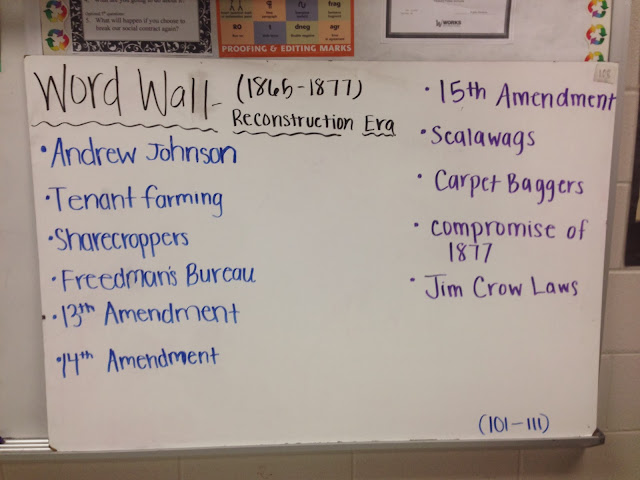 5. What will happen if you choose to
break our social contract again?
frag
RO
dneg
agr
PROOFING & EDITING MARKS
WORKS
Word Wall- (1865-1877)
Reconstruction Era
• Andrew Johnson
• Tenant farming
• Sharecroppers
• Freedman's Bureau
• 13th Amendment
• 14th Amendment
• 15th Amendment
• Scalawags
• Carpet Baggers
• compromise of
1877
• Jim Crow Laws
(101-111)